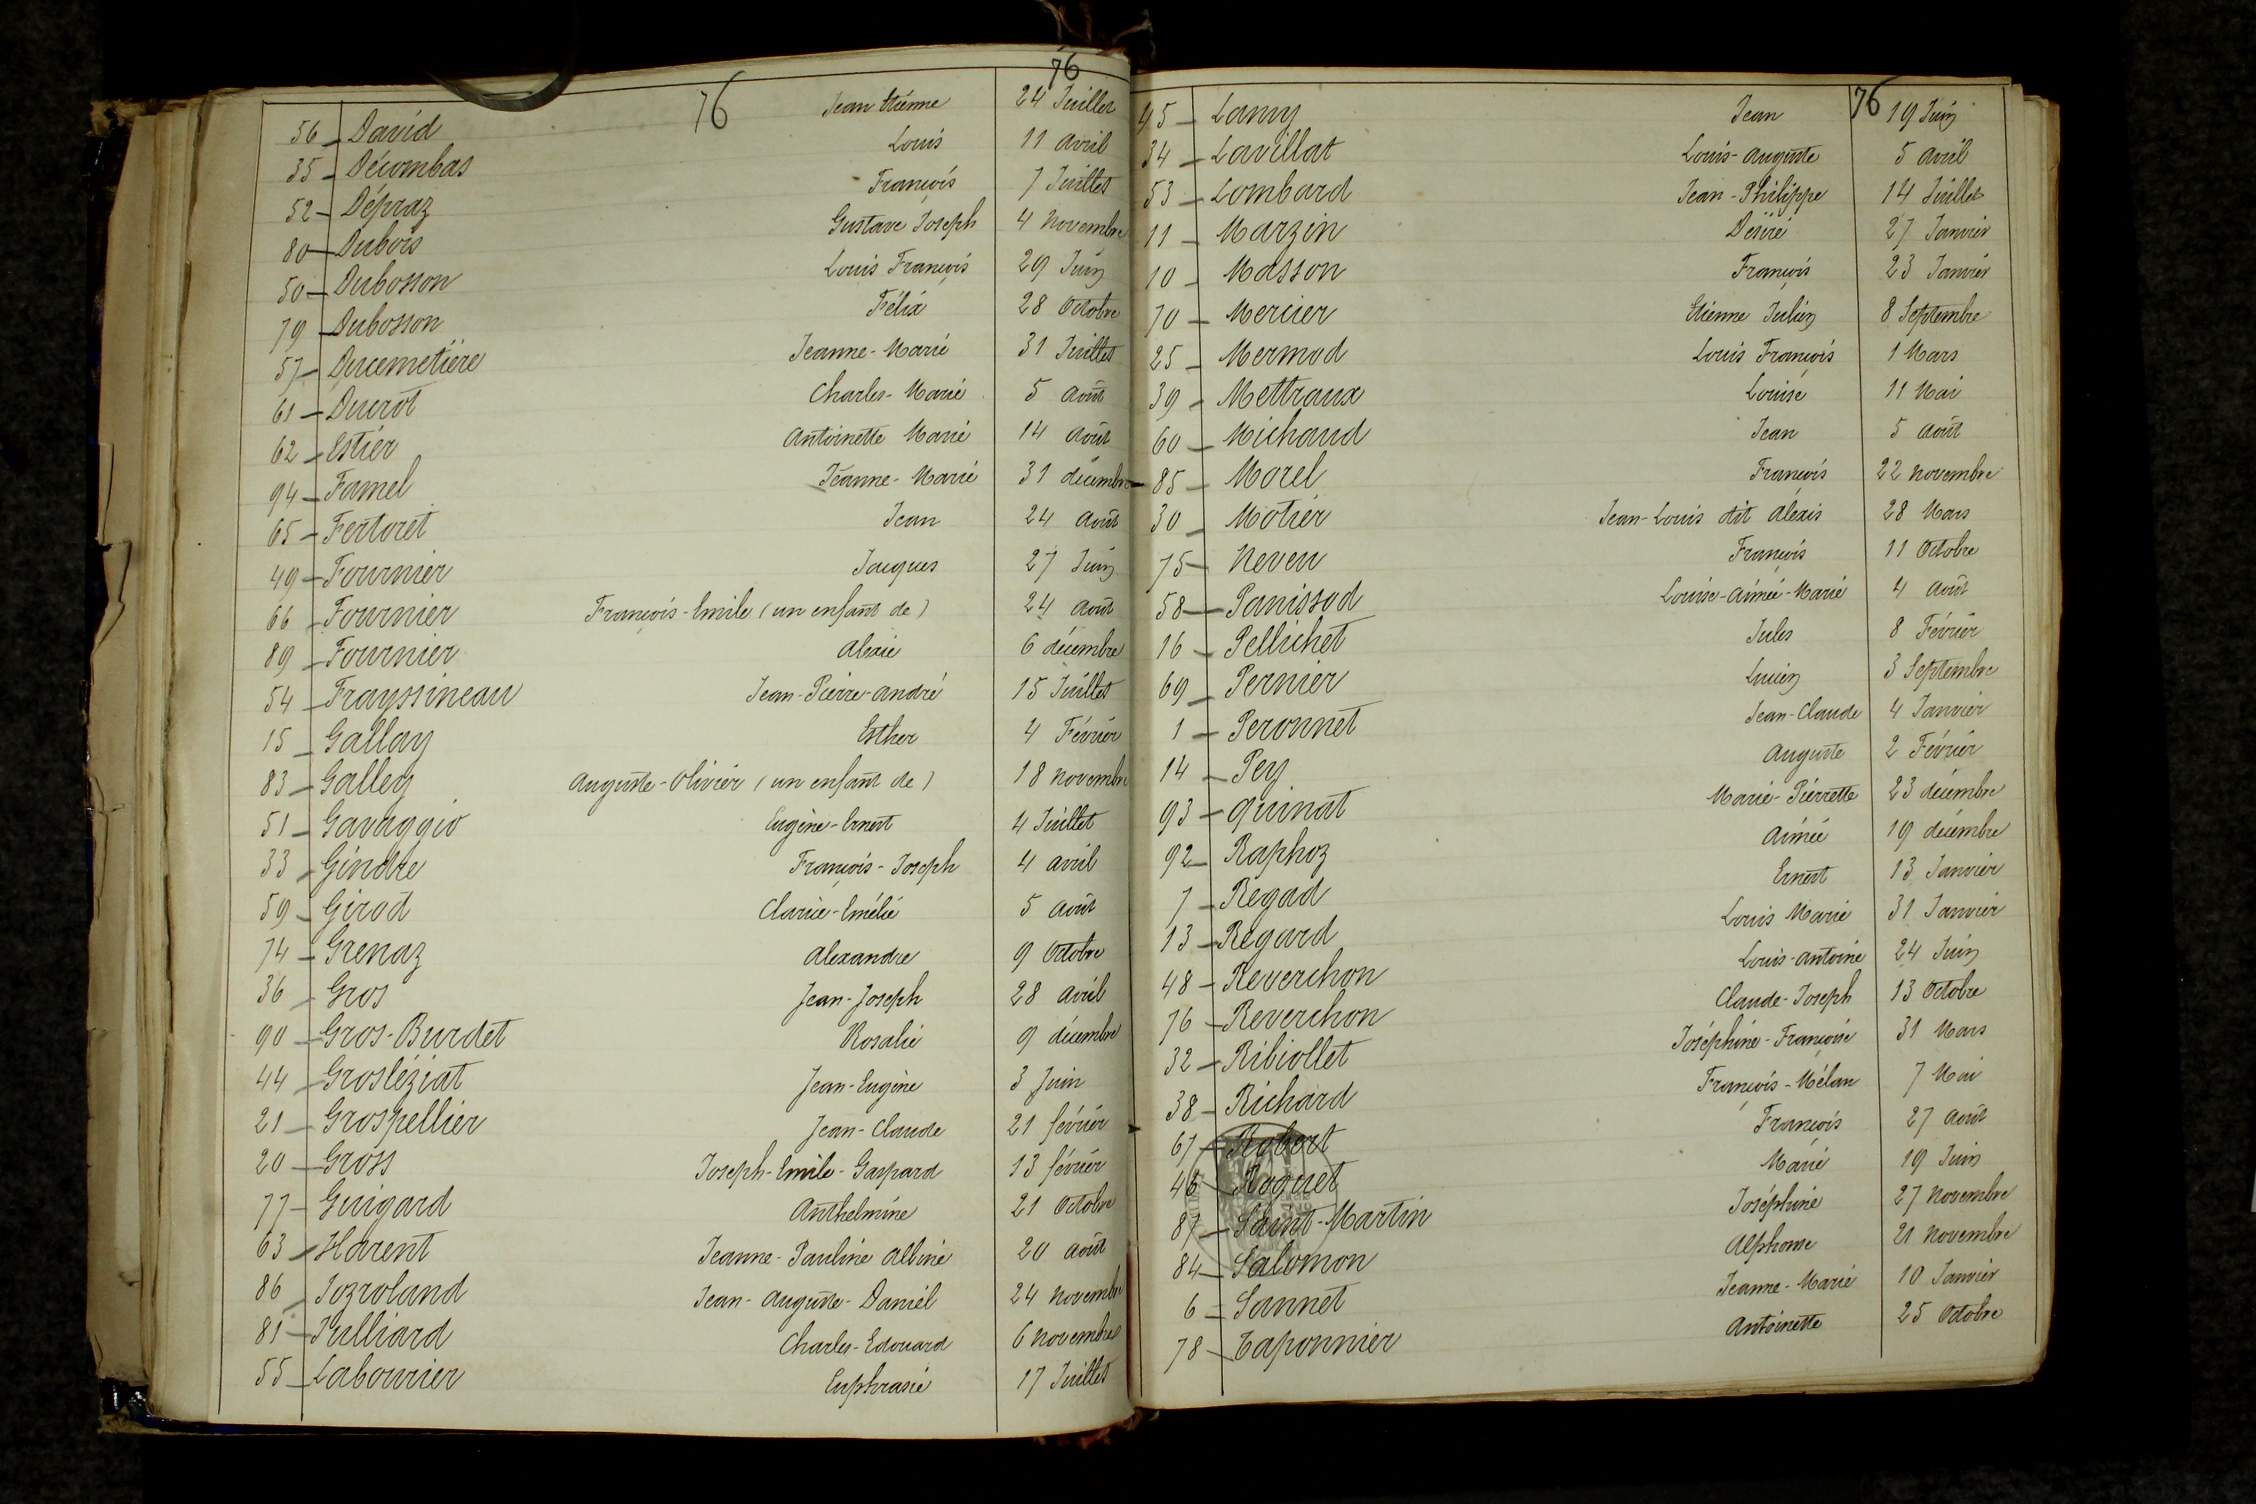 76
76
56 - David Jean Etienne 24 Juillet
35 - Décombas Louis 11 avril
52 - Dépraz François 7 Juillet
80 - Dubois Gustave Joseph 4 Novembre
50 - Dubosson Louis François 29 Juin
79 - Dubosson Félix 28 Octobre
57 - Ducemetière Jeanne-Marie 31 Juillet
61 - Ducrot Charles-Marie 5 août
62 - Estier Antoinette Marie 14 août
94 - Famel Jeanne-Marie 31 décembre
65 - Fertoret Jean 24 août
49 - Fournier Jacques 27 Juin
66 - Fournier François-Emile (un enfant de) 24 août
89 - Fournier Alexie 6 décembre
54 - Frayssineau Jean-Pierre-André 15 Juillet
15 - Gallay Esther 4 Février
83 - Galley Auguste-Olivier (un enfant de) 18 novembre
51 - Gavaggio Eugène-Ernest 4 Juillet
33 - Gindre François-Joseph 4 avril
59 - Girod Clarice-Emélie 5 août
74 - Grenaz Alexandre 9 Octobre
36 - Gros Jean-Joseph 28 avril
90 - Gros-Burdet Rosalie 9 décembre
44 - Grosléziat Jean-Eugène 3 Juin
21 - Grospellier Jean-Claude 21 février
20 - Gross Joseph-Emile-Gaspard 13 février
77 - Guigard Anthelmine 21 Octobre
63 - Harent Jeanne-Pauline Albine 20 août
86 - Jozroland Jean-Auguste-Daniel 24 novembre
81 - Julliard Charles-Edouard 6 novembre
55 - Labourier Euphrasie 17 Juillet
76
45 - Lamy Jean 19 Juin
34 - Lavillat Louis-Auguste 5 avril
53 - Lombard Jean-Philippe 14 Juillet
11 - Marzin Désiré 27 Janvier
10 - Masson François 23 Janvier
70 - Mercier Etienne Julien 8 Septembre
25 - Mermod Louis François 1 Mars
39 - Mettraux Louise 11 Mai
60 - Michaud Jean 5 août
85 - Morel François 22 novembre
30 - Motier Jean-Louis dit Alexis 28 Mars
75 - Neven François 11 Octobre
58 - Panissod Louise-Aimée-Marie 4 août
16 - Pellichet Jules 8 Février
69 - Pernier Lucien 3 Septembre
1 - Peronnet Jean-Claude 4 Janvier
14 - Pey Auguste 2 Février
93 - Quinat Marie-Pierrette 23 décembre
92 - Raphoz Aimée 19 décembre
7 - Regad Ernest 13 Janvier
13 - Regard Louis Marie 31 Janvier
48 - Reverchon Louis-Antoine 24 Juin
76 - Reverchon Claude-Joseph 13 Octobre
32 - Ribiollet Joséphine-Françoise 31 Mars
38 - Richard François-Mélan 7 Mai
67 - Robert François 27 août
46 - Roguet Marie 19 Juin
87 - Saint-Martin Joséphine 27 novembre
84 - Salomon Alphonse 21 novembre
6 - Sannet Jeanne-Marie 10 Janvier
78 - Taponnier Antoinette 25 Octobre